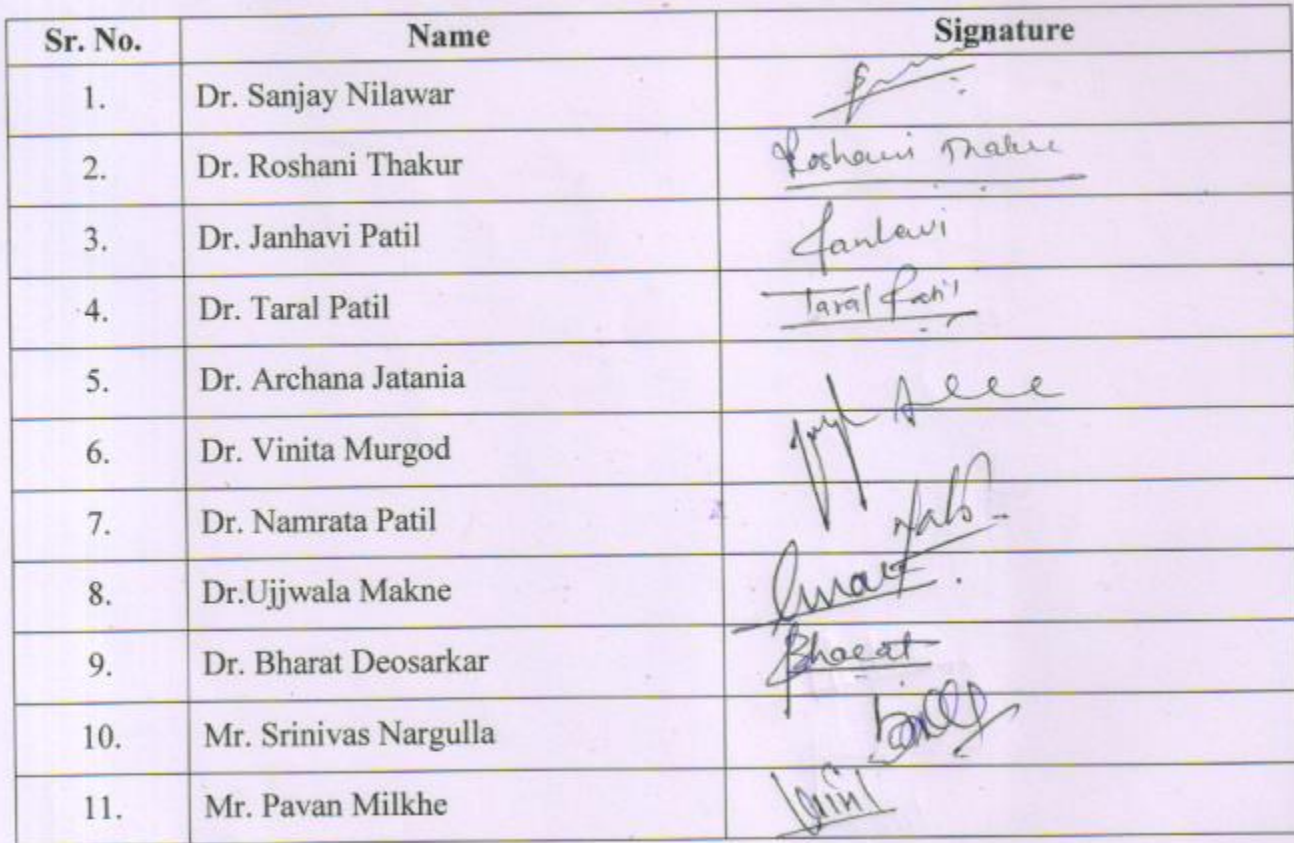 Sr. No. Name Signature
1. Dr. Sanjay Nilawar
2. Dr. Roshani Thakur Roshani Thakur
3. Dr. Janhavi Patil Janhavi
4. Dr. Taral Patil Taral Patil
5. Dr. Archana Jatania
6. Dr. Vinita Murgod
7. Dr. Namrata Patil
8. Dr.Ujjwala Makne
9. Dr. Bharat Deosarkar Bharat
10. Mr. Srinivas Nargulla
11. Mr. Pavan Milkhe